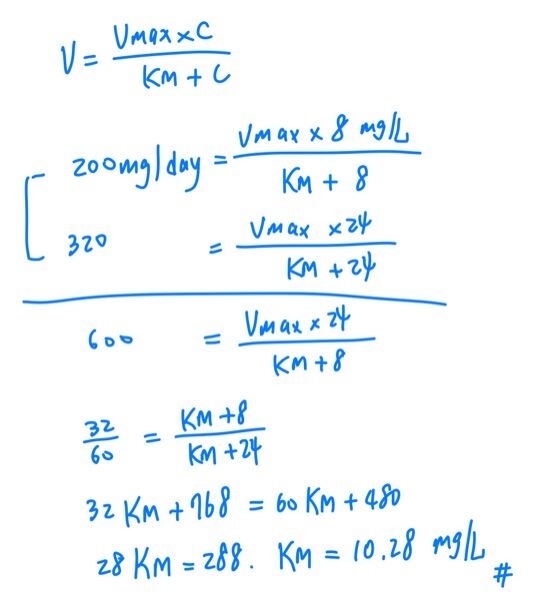 V = Vmax × C / KM + C
200mg/day = Vmax × 8 mg/L / KM + 8
320 = Vmax × 24 / KM + 24
600 = Vmax × 24 / KM + 8
32/60 = KM + 8 / KM + 24
32 KM + 768 = 60 KM + 480
28 KM = 288. KM = 10.28 mg/L #